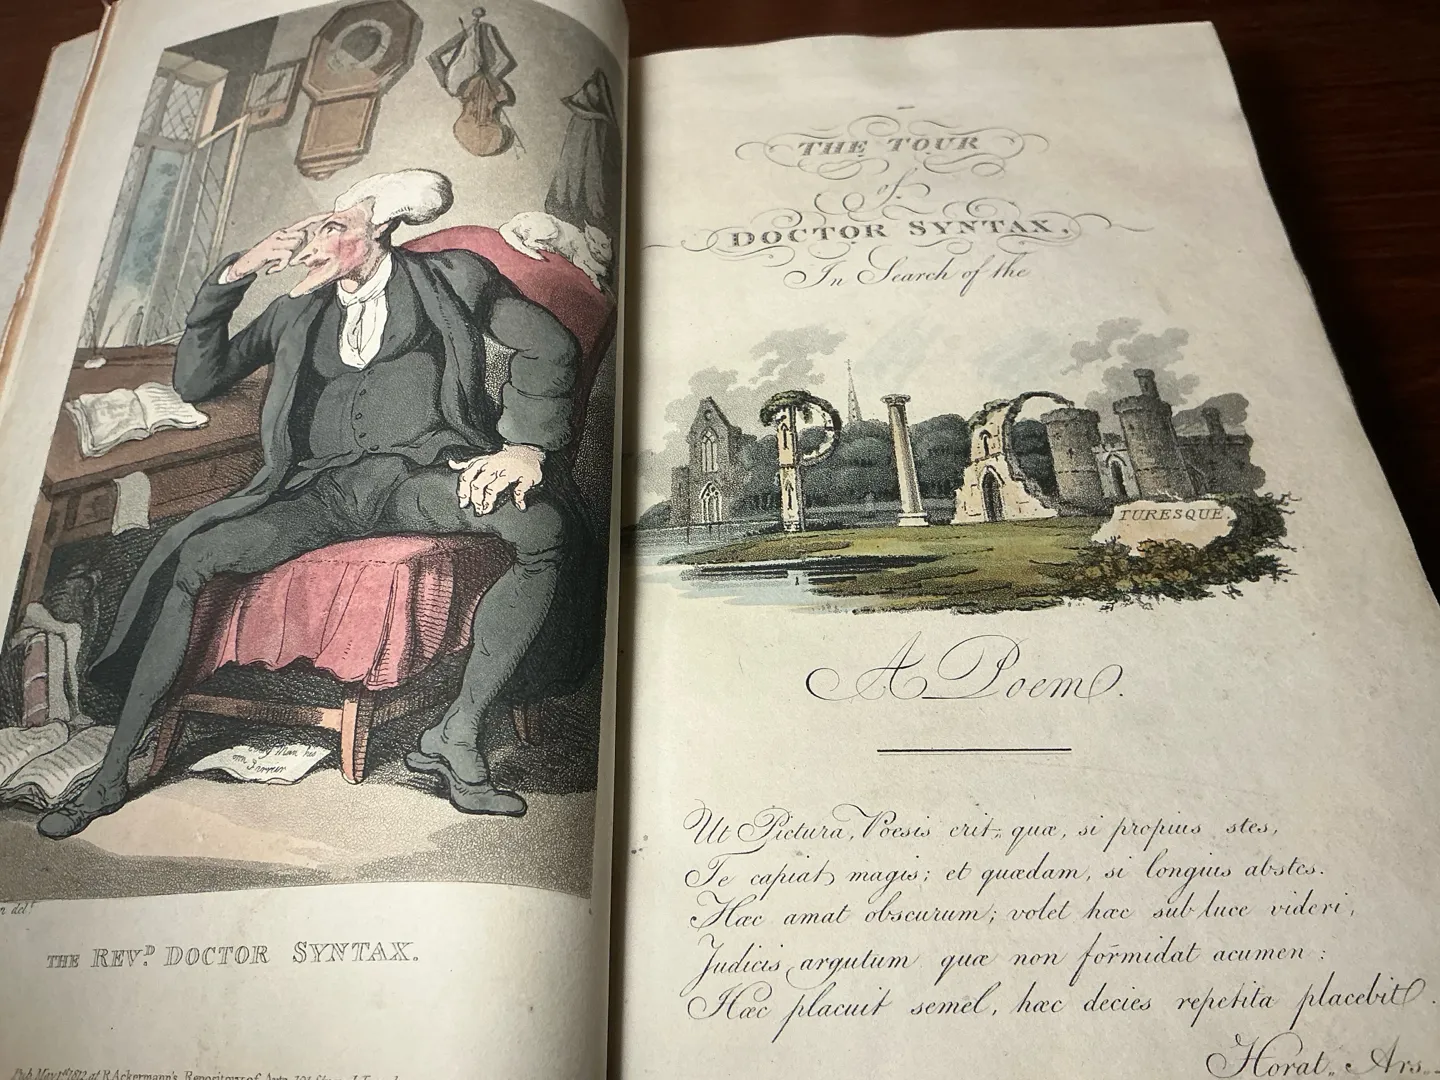 own Farrier
n delt.
THE REVD. DOCTOR SYNTAX.
Pub. May 1st 1812 at R Ackermann's Repository of Arts 101
THE TOUR
of
DOCTOR SYNTAX,
In Search of the
PIC
TURESQUE
A Poem.
Ut Pictura, Poesis erit; quæ, si propius stes,
Te capiat magis; et quædam, si longius abstes.
Hæc amat obscurum; volet hæc sub luce videri,
Judicis argutum quæ non formidat acumen:
Hæc placuit semel, hæc decies repetita placebit.
Horat. Ars.